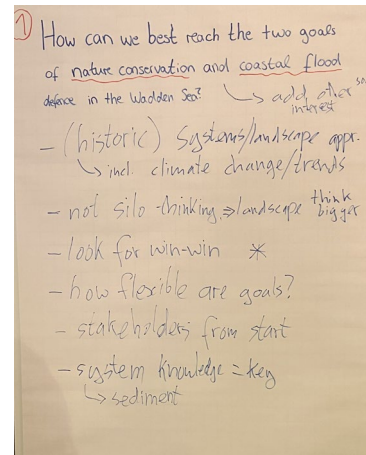 1 How can we best reach the two goals
of nature conservation and coastal flood
defence in the Wadden Sea? ↳ add other
interest
- (historic) systems/landscape appr.
↳ incl. climate change/trends
- not silo-thinking ⇒ landscape think
bigger
- look for win-win *
- how flexible are goals?
- stakeholders from start
- system knowledge = key
↳ sediment